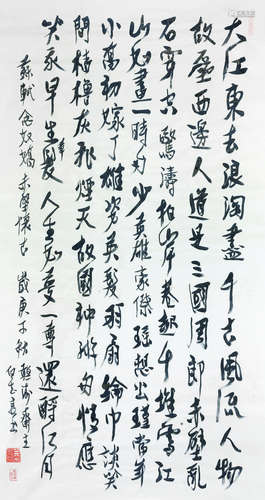 大江東去浪淘盡千古風流人物
故壘西邊人道是三國周郎赤壁亂
石穿空驚濤拍岸卷起千堆雪江
山如畫一時多少英雄豪傑遙想公瑾當年
小喬初嫁了雄姿英發羽扇綸巾談笑
間檣櫓灰飛煙灭故國神遊多情應
笑我早生華髮人生如夢一尊還酹江月
蘇軾念奴嬌赤壁懷古歲庚子秋齋主